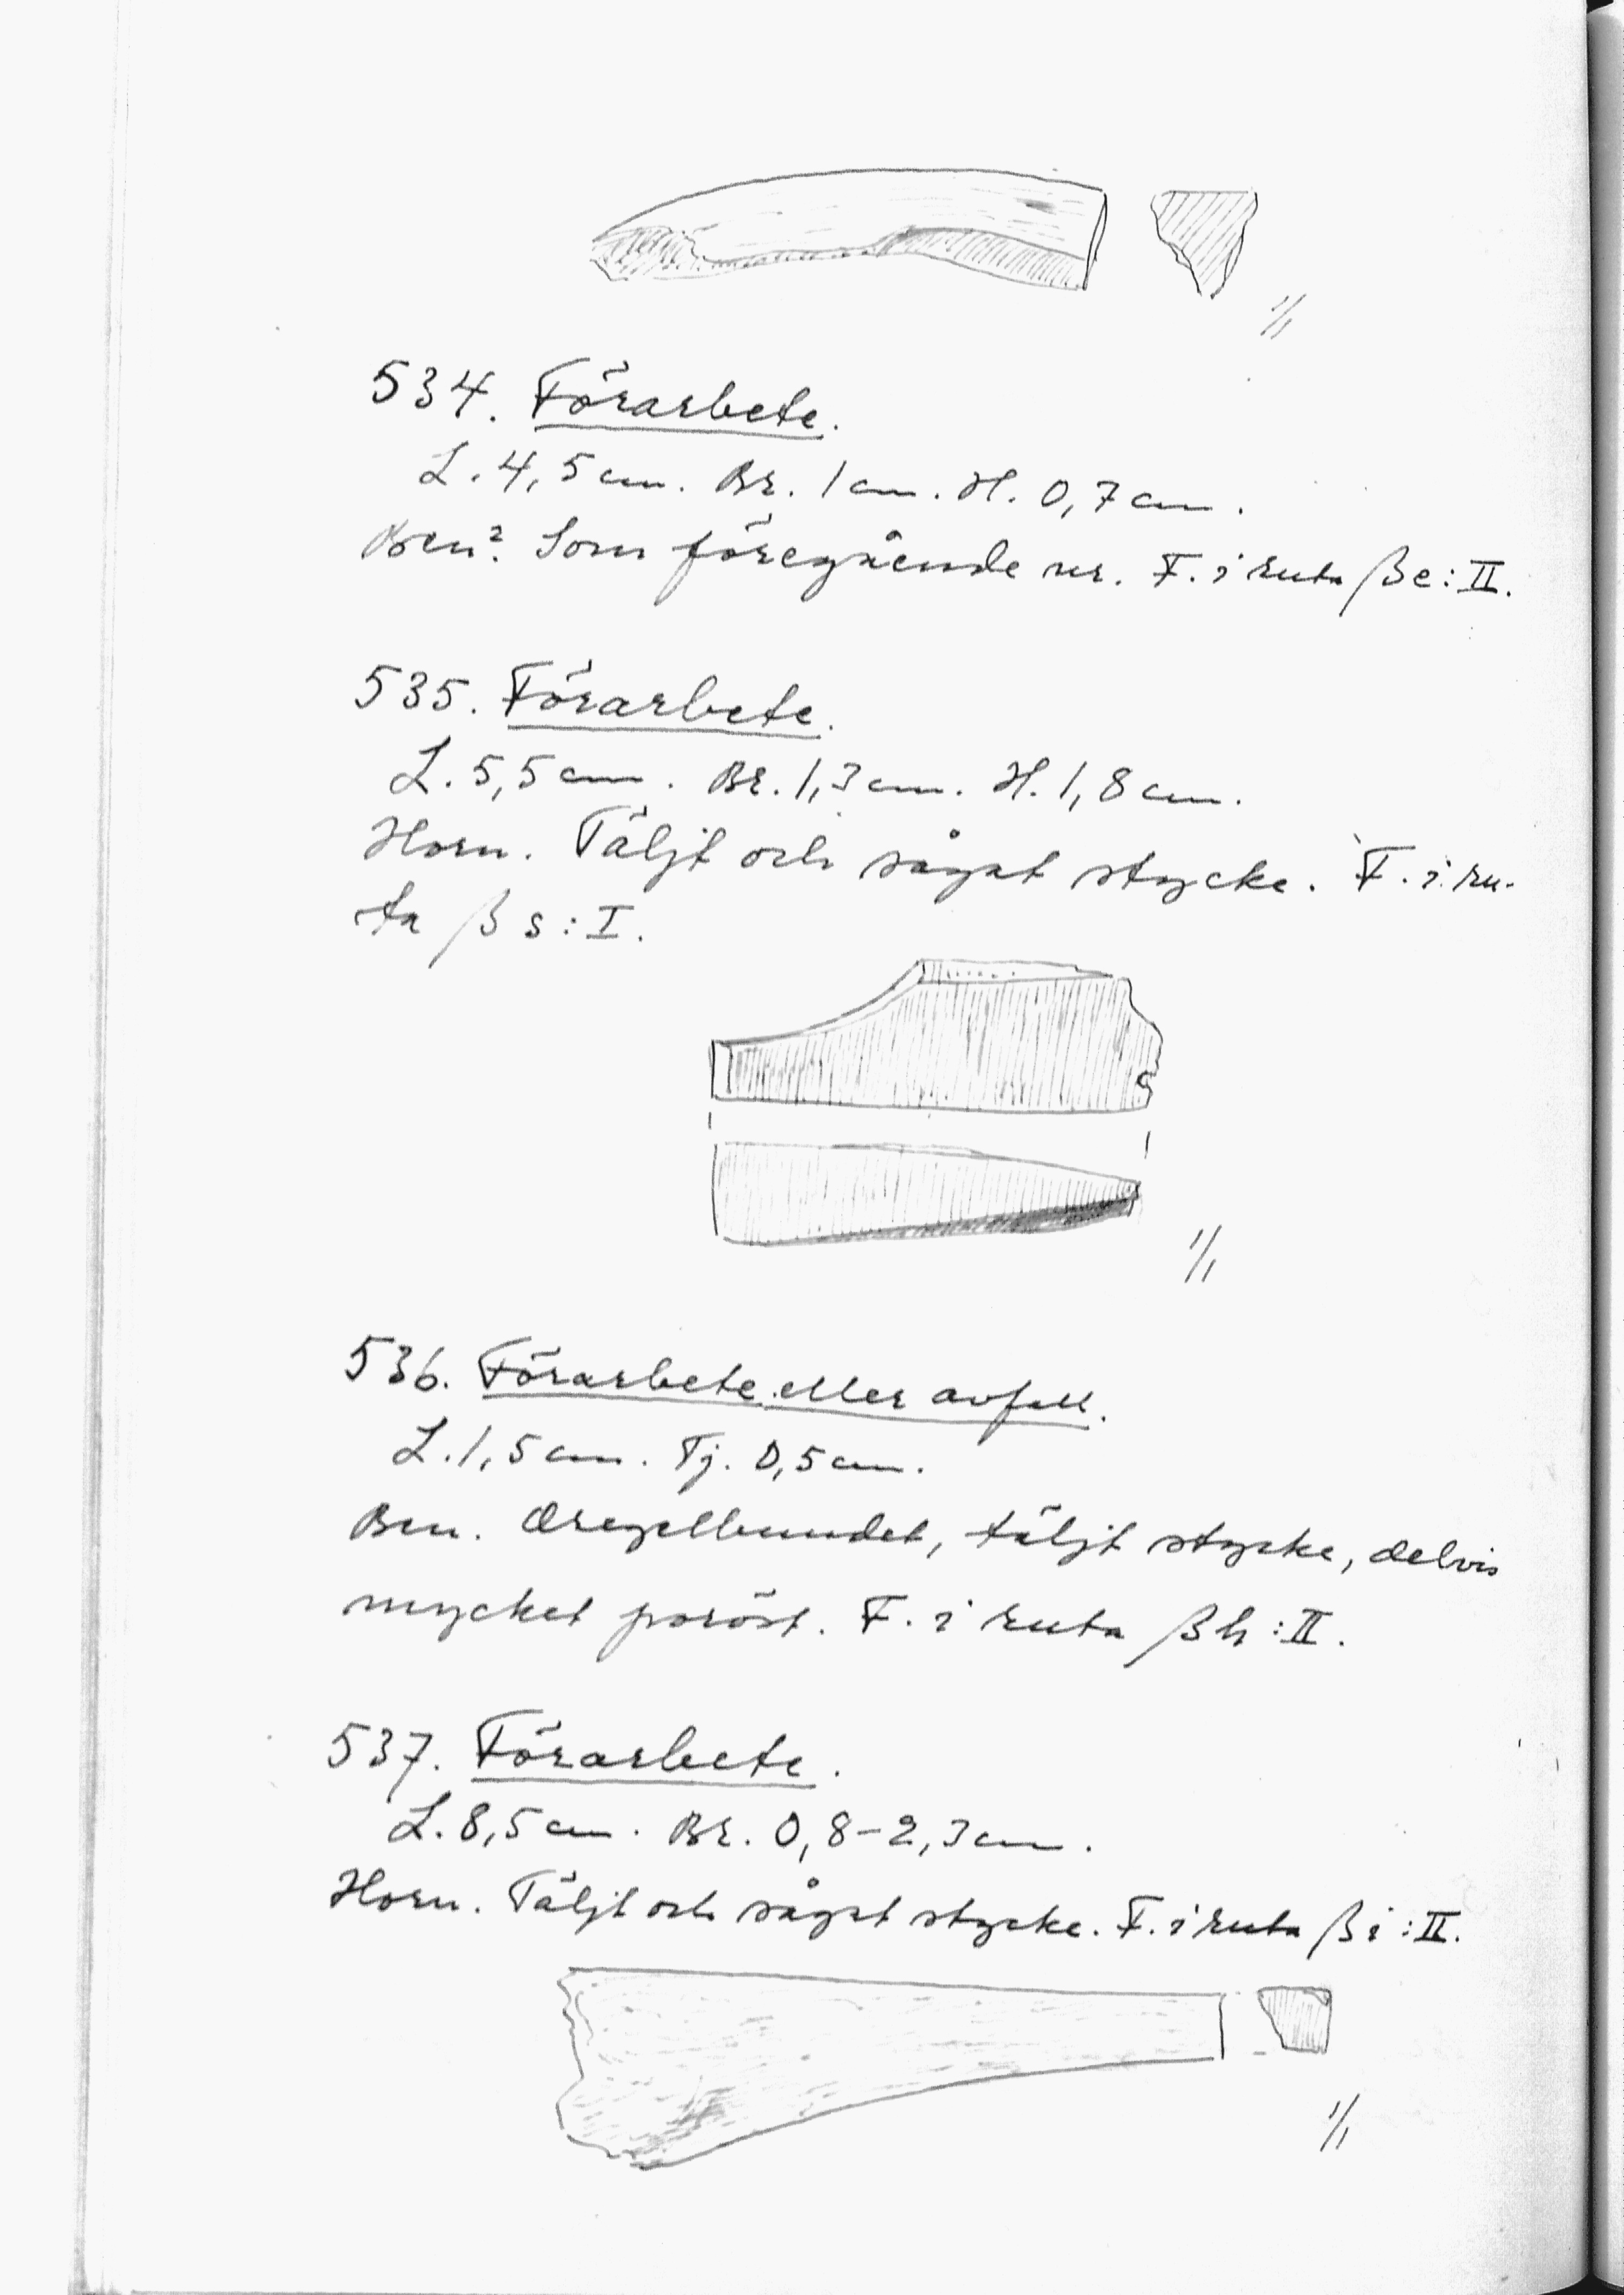 1/1
534. Förarbete.
L. 4,5 cm. Br. 1 cm. H. 0,7 cm.
Ben? Som föregående nr. F. i ruta βe: II.
535. Förarbete.
L. 5,5 cm. Br. 1,3 cm. H. 1,8 cm.
Horn. Täljt och sågat stycke. F. i ru-
ta β s: I.
1/1
536. Förarbete eller avfall.
L. 1,5 cm. Tj. 0,5 cm.
Ben. Oregelbundet, täljt stycke, delvis
mycket poröst. F. i ruta βh: II.
537. Förarbete.
L. 8,5 cm. Br. 0,8-2,3 cm.
Horn. Täljt och sågat stycke. F. i ruta βi: II.
1/1